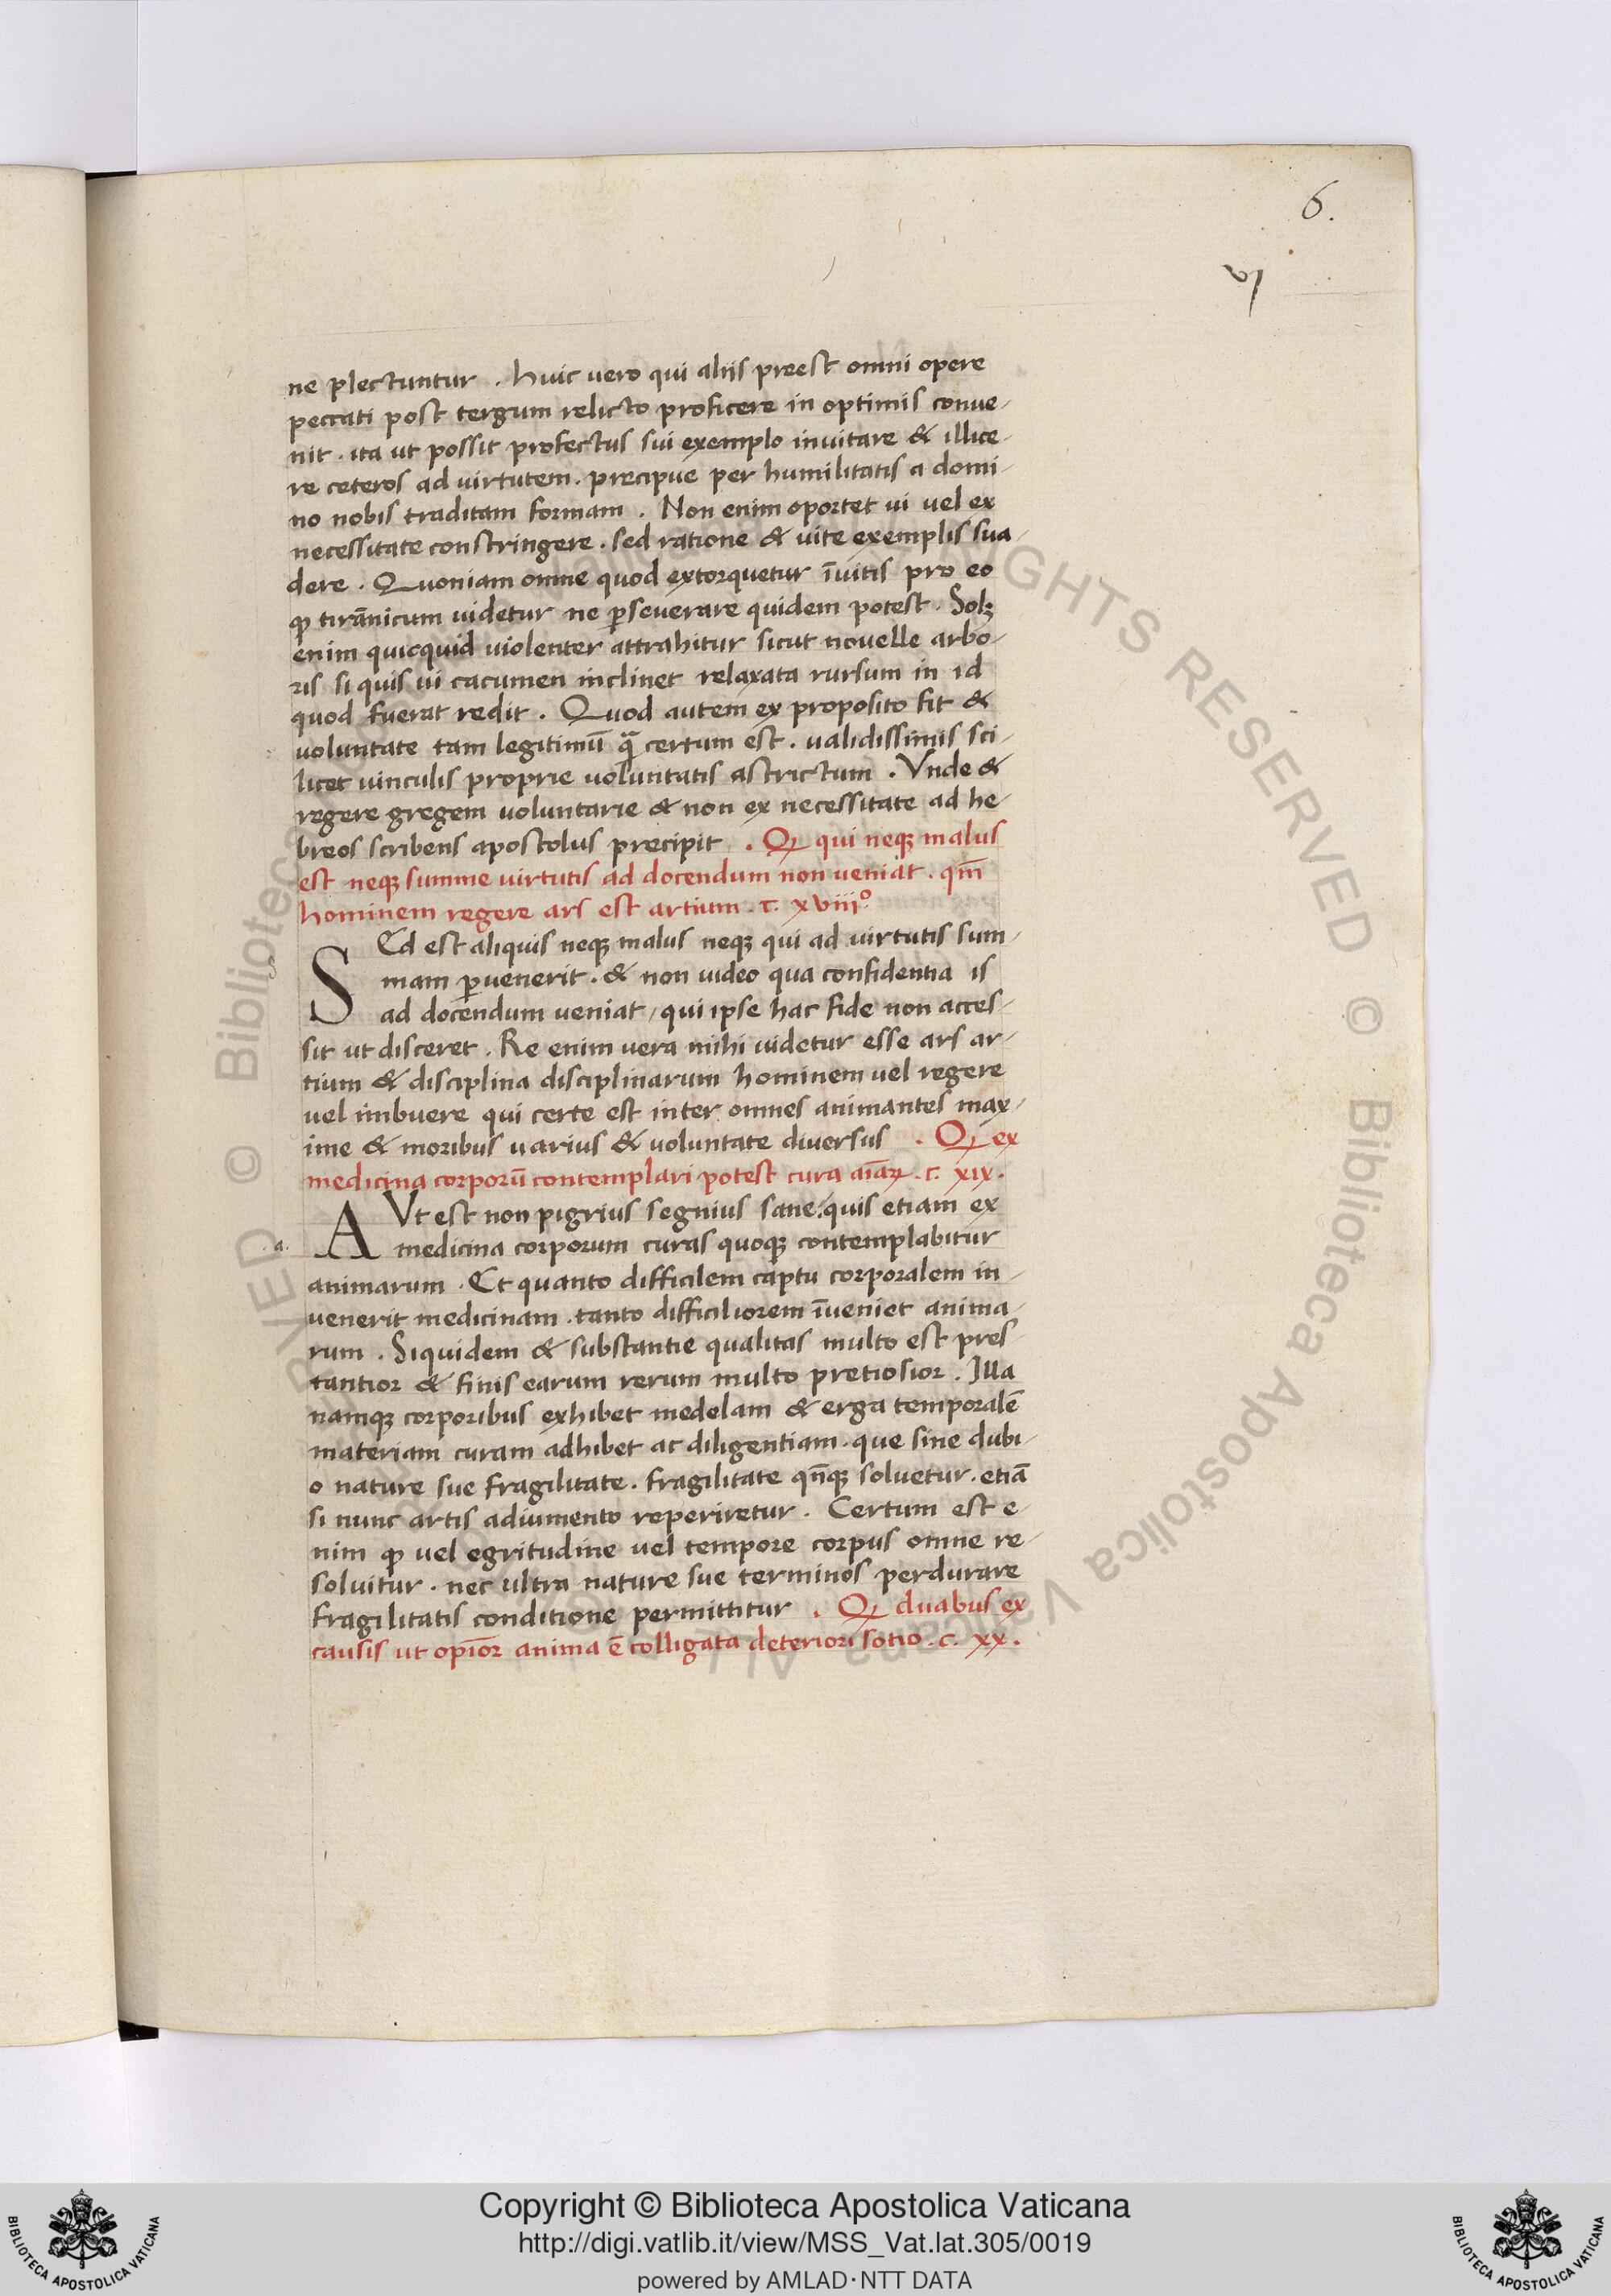 6.
vj
ne plectuntur . Huic uero qui aliis preest omni opere
peccati post tergum relicto proficere in optimis conue-
nit . ita ut possit profectus sui exemplo inuitare & illice-
re ceteros ad virtutem . precipue per humilitatis a domi-
no nobis traditam formam . Non enim oportet ui uel ex
necessitate constringere . sed ratione & uite exemplis sua-
dere . Quoniam omne quod extorquetur īuitis pro eo
ꝙ tirānicum uidetur ne ꝑseuerare quidem potest . Solꝫ
enim quicquid uiolenter attrahitur sicut nouelle arbo-
ris si quis ui cacumen inclinet relaxata rursum in id
quod fuerat redit . Quod autem ex proposito fit &
uoluntate tam legitimū q̄ certum est . ualidissimis sci-
licet uinculis proprie uoluntatis astrictum . Vnde &
regere gregem uoluntarie & non ex necessitate ad he-
breos scribens apostolus precipit . Ꝙ qui neqꝫ malus
est neqꝫ summe uirtutis ad docendum non ueniat . qm̄
hominem regere ars est artium . c. xviiiº
SEd est aliquis neqꝫ malus neqꝫ qui ad uirtutis sum-
mam ꝑuenerit . & non uideo qua confidentia is
ad docendum ueniat / qui ipse hac fide non acces-
sit ut disceret . Re enim uera mihi uidetur esse ars ar-
tium & disciplina disciplinarum hominem uel regere
uel imbuere qui certe est inter omnes animantes max-
ime & moribus uarius & uoluntate diuersus . Ꝙ ex
medicina corporū contemplari potest cura aīaꝝ . c. xix.
.a.
AVt est non pigrius segnius sane : quis etiam ex
medicina corporum curas quoqꝫ contemplabitur
animarum . Et quanto difficilem captu corporalem in-
uenerit medicinam . tanto difficiliorem īueniet anima-
rum . Siquidem & substantie qualitas multo est pres-
tantior & finis earum rerum multo pretiosior . Illa
namqꝫ corporibus exhibet medelam & erga temporalē
materiam curam adhibet ac diligentiam . que sine dubi-
o nature sue fragilitate . fragilitate qn̄qꝫ soluetur . etiā
si nunc artis adiumento reperiretur . Certum est e-
nim ꝙ uel egritudine uel tempore corpus omne re-
soluitur . nec ultra nature sue terminos perdurare
fragilitatis conditione permittitur . Ꝙ duabus ex
causis ut opīor anima ē colligata deteriori sotio . c. xx.
Copyright © Biblioteca Apostolica Vaticana
http://digi.vatlib.it/view/MSS_Vat.lat.305/0019
powered by AMLAD·NTT DATA